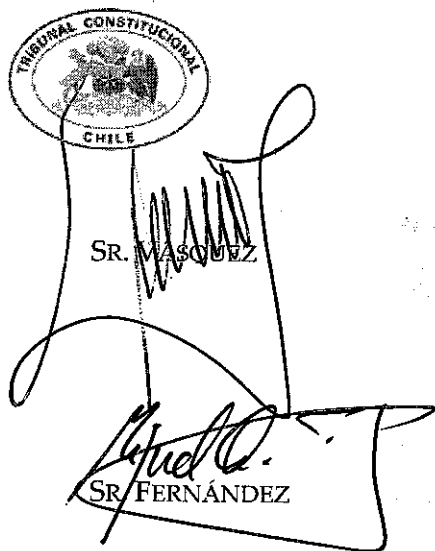 TRIBUNAL CONSTITUCIONAL
CHILE
SR. VÁSQUEZ
SR. FERNÁNDEZ